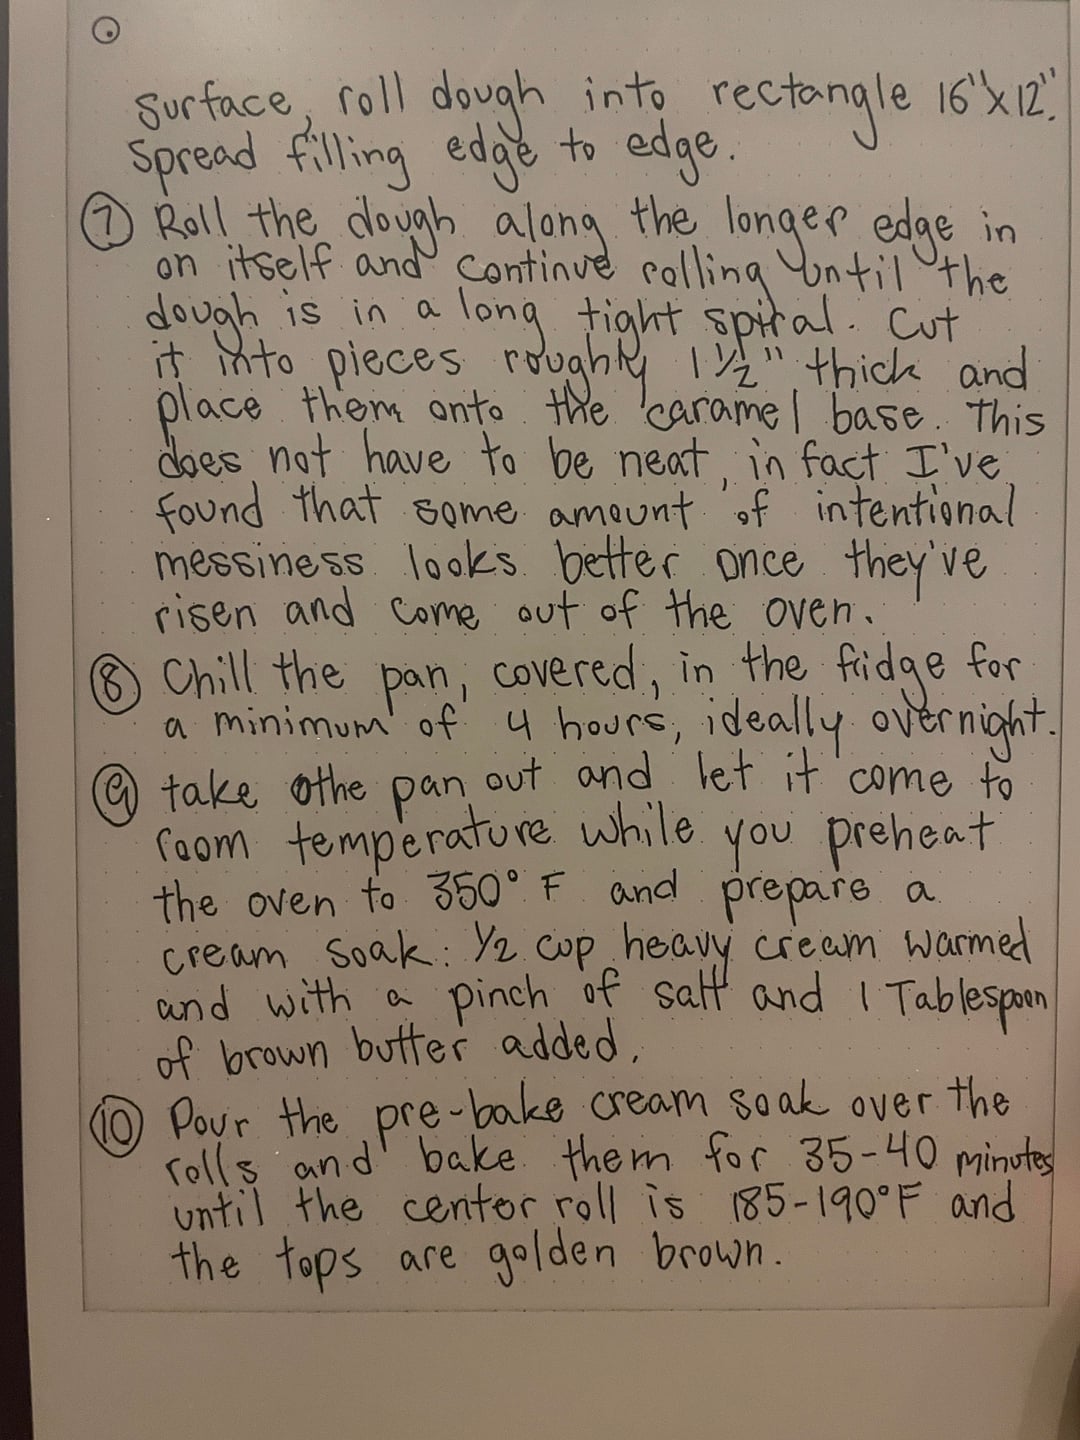 surface, roll dough into rectangle 16"x12".
Spread filling edge to edge.
7 Roll the dough along the longer edge in
on itself and continue rolling until the
dough is in a long tight spiral. Cut
it into pieces roughly 1 1/2" thick and
place them onto the caramel base. This
does not have to be neat, in fact I've
found that some amount of intentional
messiness looks better once they've
risen and come out of the oven.
8 Chill the pan, covered, in the fridge for
a minimum of 4 hours, ideally overnight.
9 take the pan out and let it come to
room temperature while you preheat
the oven to 350° F and prepare a
cream soak: 1/2 cup heavy cream warmed
and with a pinch of salt and 1 Tablespoon
of brown butter added.
10 Pour the pre-bake cream soak over the
rolls and bake them for 35-40 minutes
until the center roll is 185-190°F and
the tops are golden brown.